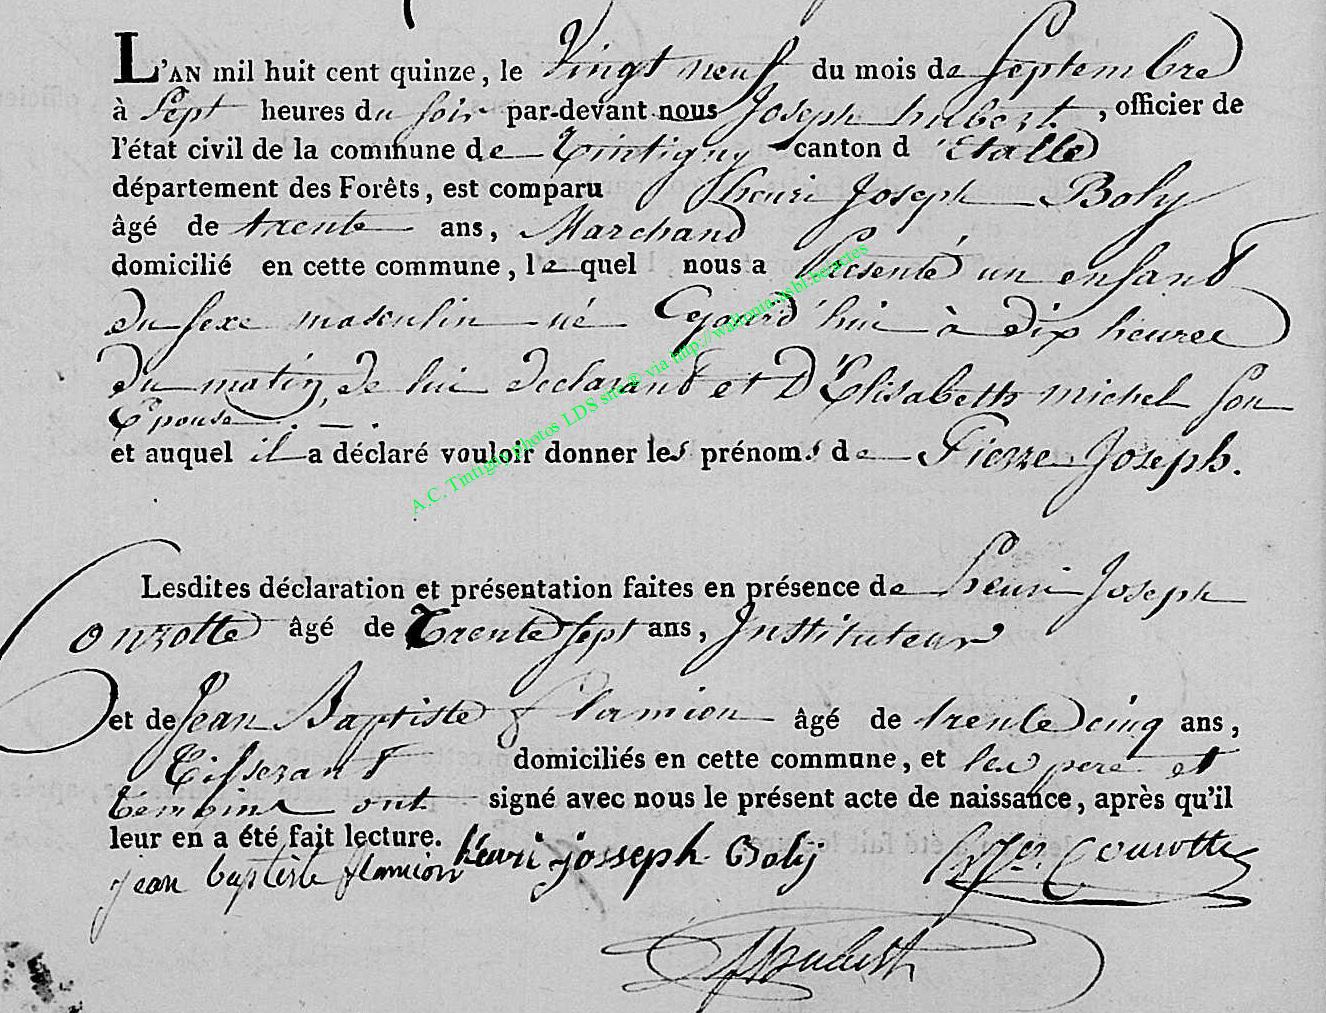 L'AN mil huit cent quinze, le Vingt neuf du mois de Septembre
à Sept heures du soir par-devant nous Joseph hubert, officier de
l'état civil de la commune de Tintigny canton d'Etalle
département des Forêts, est comparu henri Joseph Boly
âgé de trente ans, Marchand
domicilié en cette commune, lequel nous a présenté un enfant
du sexe masculin né Cejourd'hui à dix heures
du matin, de lui déclarant et D'Elisabeth michel son
Epouse
et auquel il a déclaré vouloir donner les prénoms de Pierre Joseph.
A.C. Tintigny photos LDS site ® via http://wallonia-asbl.be/actes
Lesdites déclaration et présentation faites en présence de henri Joseph
Conrotte âgé de Trente sept ans, Instituteur
et de Jean Baptiste flamion âgé de trente cinq ans,
Tisserant domiciliés en cette commune, et les pere et
témoins ont signé avec nous le présent acte de naissance, après qu'il
leur en a été fait lecture.
jean baptiste flamion henri josseph Boly Conrotte
Hubert